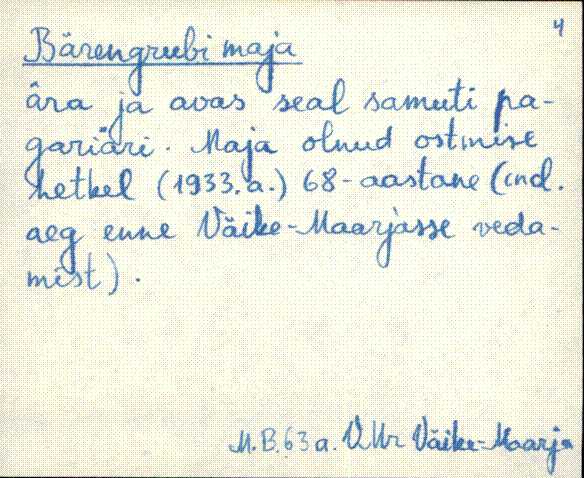 4
Bärengrubi maja
ära ja avas seal samuti pa-
gariäri. Maja olnud ostmise
hetkel (1933.a.) 68-aastane (ind.
aeg enne Väike-Maarjasse veda-
mist).
M.B. 63 a. V.Mr Väike-Maarja